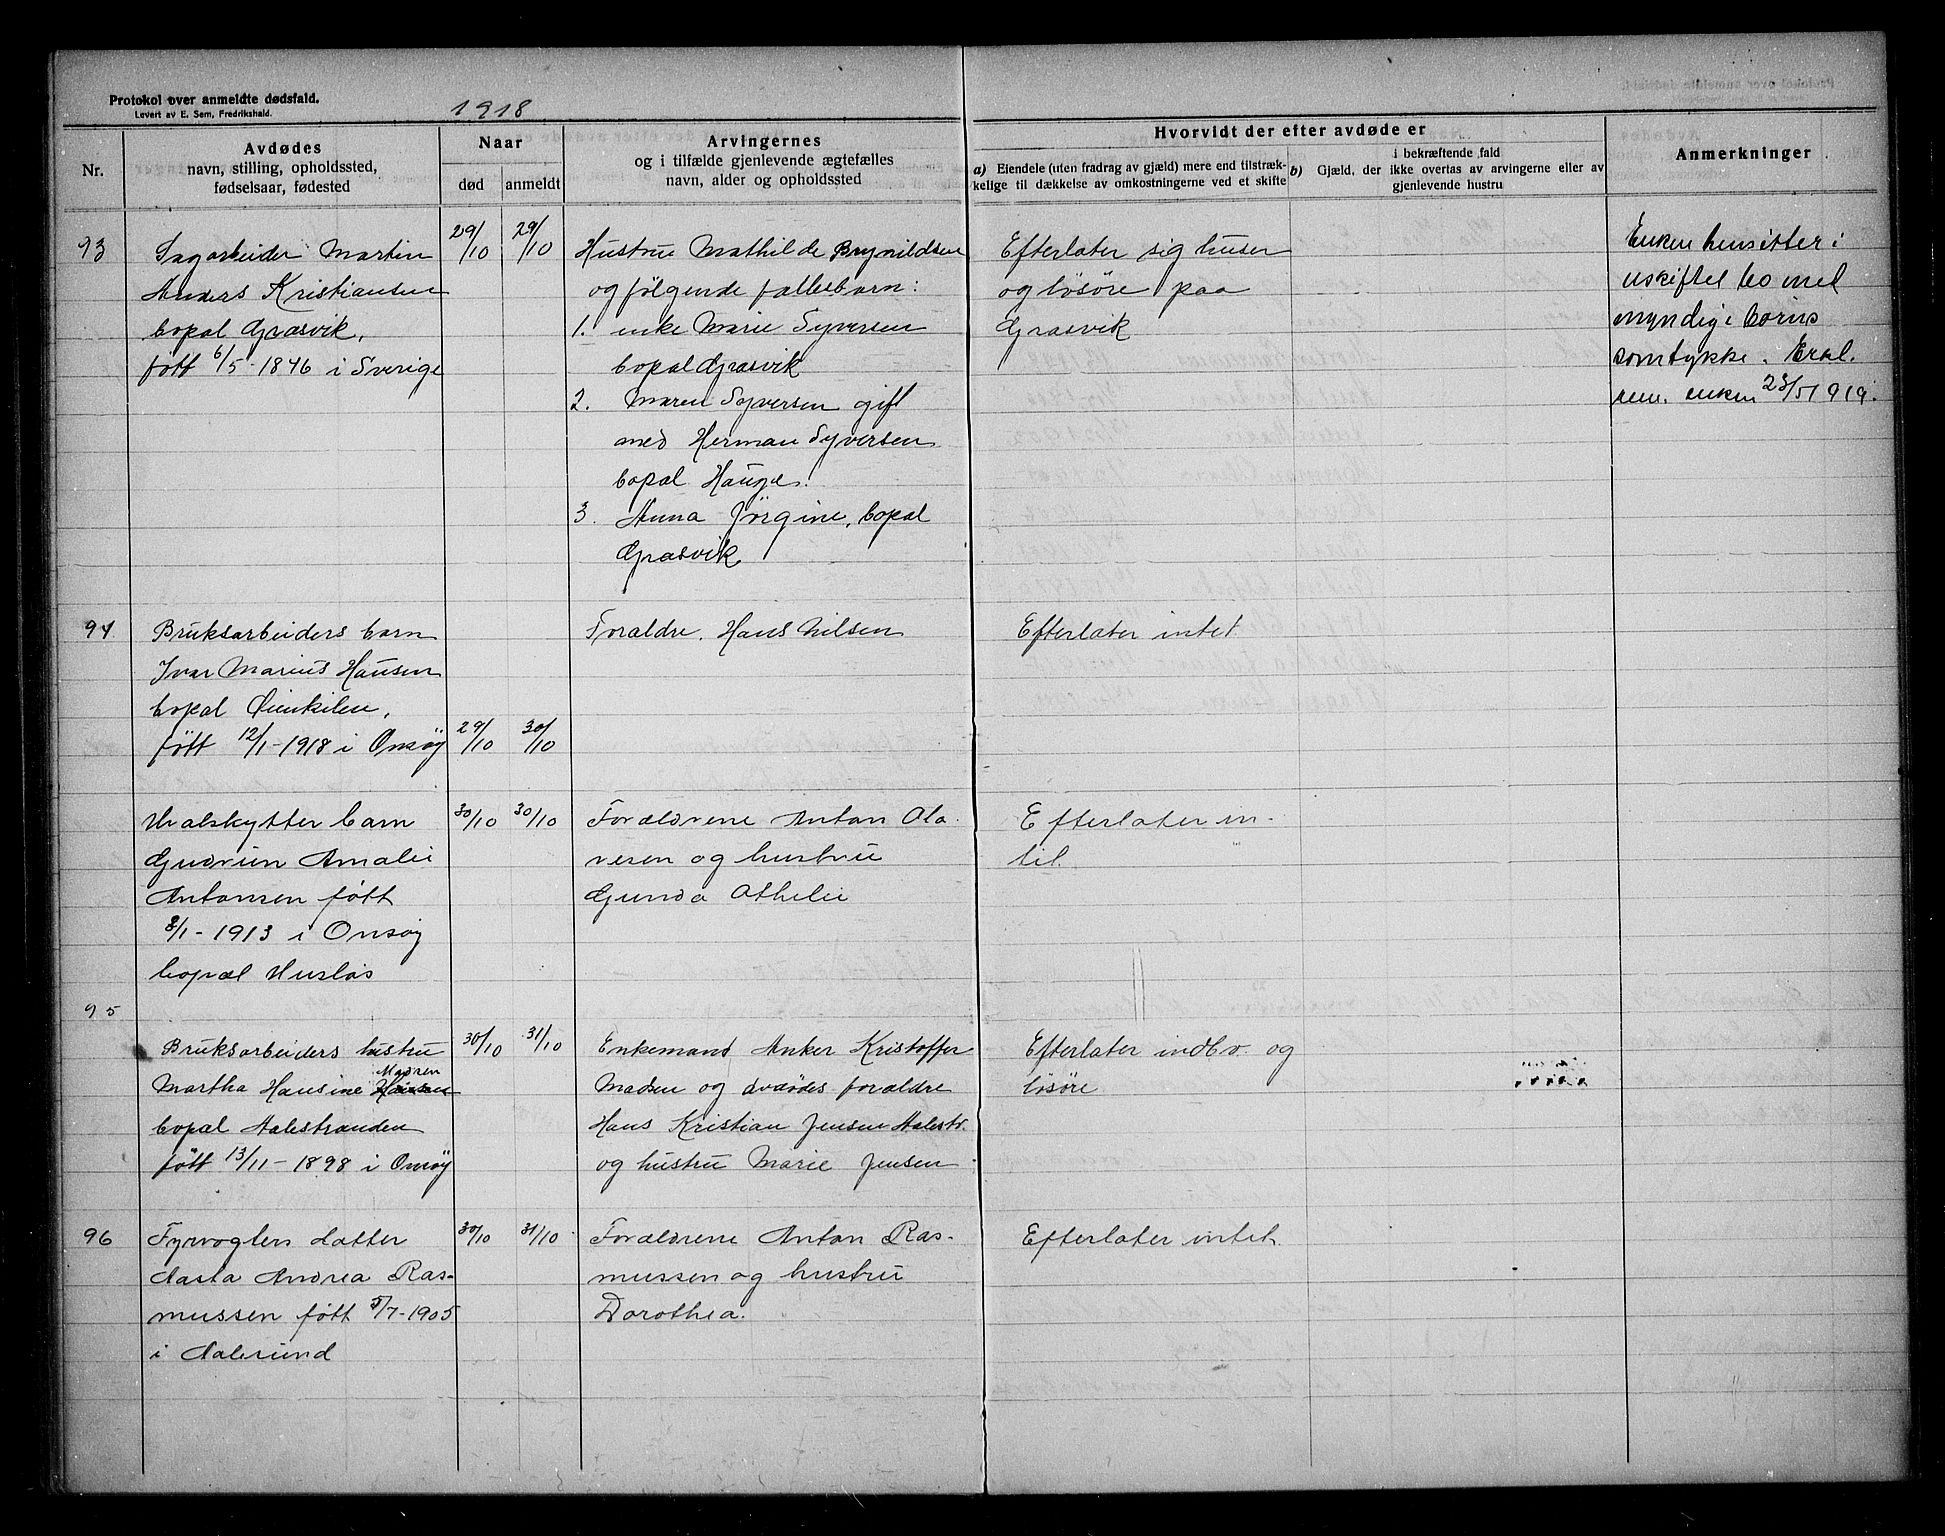 Protokol over anmeldte dødsfald.
Levert av E. Sem, Fredrikshald.
1918
Nr.
Avdødes
navn, stilling, opholdssted,
fødselsaar, fødested
Naar
død
anmeldt
Arvingernes
og i tilfælde gjenlevende ægtefælles
navn, alder og opholdssted
Hvorvidt der efter avdøde er
a) Eiendele (uten fradrag av gjæld) mere end tilstræk-
kelige til dækkelse av omkostningerne ved et skifte
b) Gjæld, der i bekræftende fald
ikke overtas av arvingerne eller av
gjenlevende hustru
Anmerkninger
93
Sagarbeider Martin
Anders Kristiansen
bopal Græsvik,
født 6/5-1846 i Sverige
29/10
29/10
Hustru Mathilde Brynildsen
og følgende fællesbarn:
1. enke Marie Syversen
bopal Græsvik
2. Maren Syversen gift
med Herman Syversen
bopal Hauge.
3. Anna Jörgine, bopal
Græsvik
Efterlater sig huser
og løsöre paa
Græsvik
Enken hensitter i
uskiftet bo med
myndige børns
samtykke. Erkl.
enken 23/5 1919.
94
Bruksarbeiders barn
Ivar Marius Hansen
bopal Øienkilen,
født 12/1-1918 i Onsøy
29/10
30/10
Foraldre, Hans Nilsen
Efterlater intet
Hvalskytter barn
Gudrun Amalie
Antonsen født
8/1-1913 i Onsøy
bopæl Husløs
30/10
30/10
Forældrene Anton Ola-
vesen og hustru
Gunda Athelie
Efterlater in-
tet.
95
Bruksarbeiders hustru
Martha Hansine Madsen
bopal Aalestranden
født 13/11-1898 i Onsøy
30/10
31/10
Enkemand Anker Kristoffer
Madsen og avdødes forældre
Hans Kristian Jensen Aalestr.
og hustru Marie Jensen
Efterlater indbo. og
løsøre
96
Fyrvogters datter
Aasta Andrea Ras-
mussen født 5/7-1905
i Aalesund
30/10
31/10
Forældrene Anton Ras-
mussen og hustru
Dorothea.
Efterlater intet.